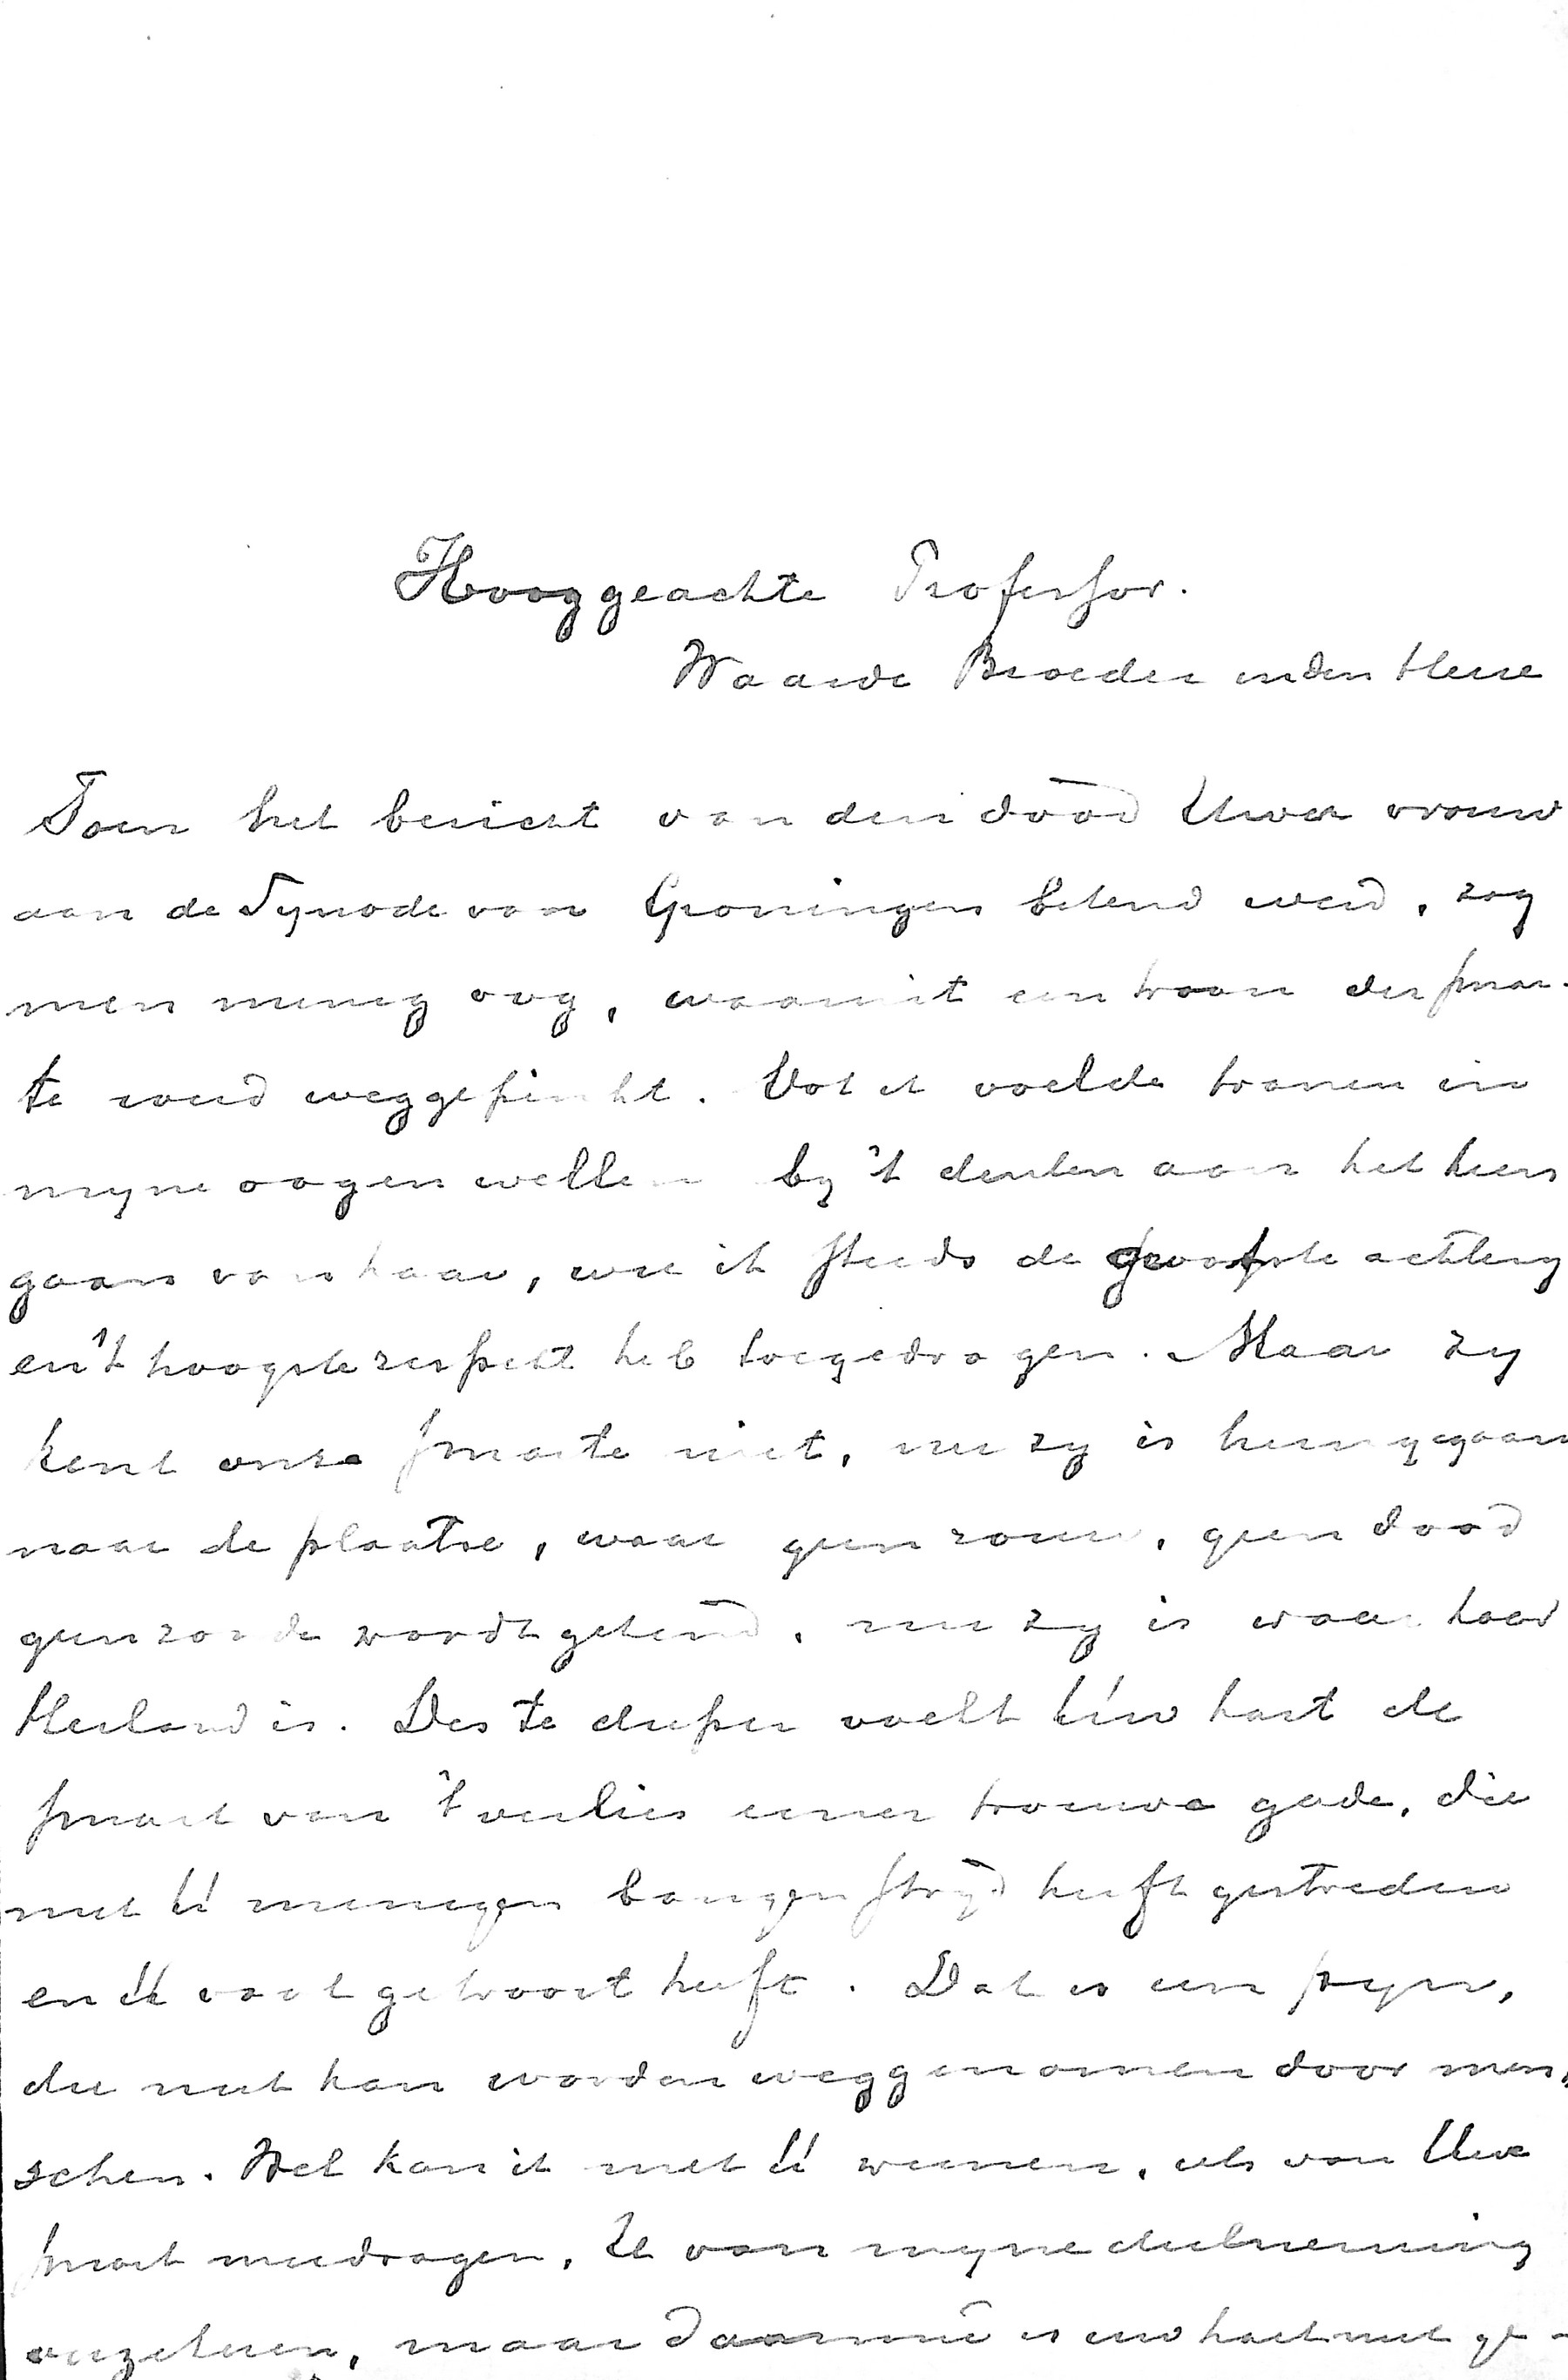 Hooggeachte Professor.
Waarde Broeder in den Heere
Toen het bericht van den dood Uwer vrouw
aan de Synode van Groningen bekend werd, zag
men menig oog, waaruit een traan der smar-
te werd weggepinkt. Ook ik voelde tranen in
myne oogen wellen by 't denken aan het heen
gaan van haar, wie ik steeds de grootste achting
en 't hoogste respect heb toegedragen. Maar zy
kent onze smarte niet, nu zy is heengegaan
naar de plaatse, waar geen rouw, geen dood
geen zonde wordt gekend, nu zy is waar haar
Heiland is. Des te dieper voelt Uw hart de
smart van 't verlies eener trouwe gade, die
met U menigen bangen stryd heeft gestreden
en U vaak getroost heeft. Dat is een pyn,
die niet kan worden weggenomen door men-
schen. Wel kan ik met U weenen, iets van Uwe
smart meedragen, U van myne deelneming
verzekeren, maar daarmeê is uw hart niet ge-